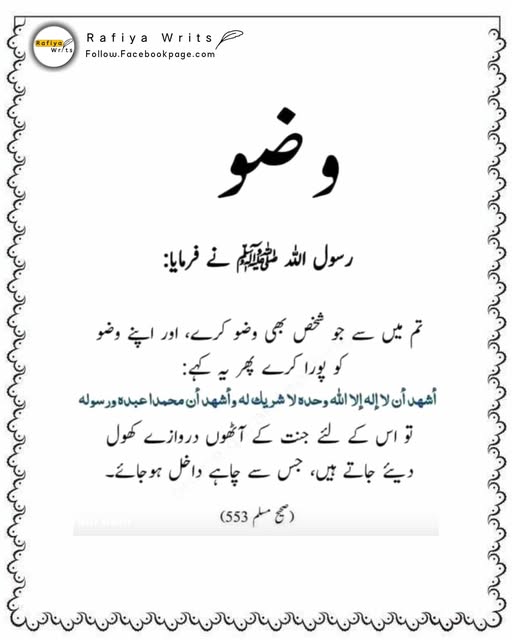 Rafiya Writs
Rafiya
Writs
Follow.Facebookpage.com
وضو
رسول اللہ ﷺ نے فرمایا:
تم میں سے جو شخص بھی وضو کرے، اور اپنے وضو
کو پورا کرے پھر یہ کہے:
أشهد أن لا إله إلا الله وحده لا شريك له وأشهد أن محمدا عبده ورسوله
تو اس کے لئے جنت کے آٹھوں دروازے کھول
دیئے جاتے ہیں، جس سے چاہے داخل ہوجائے۔
(صحیح مسلم 553)